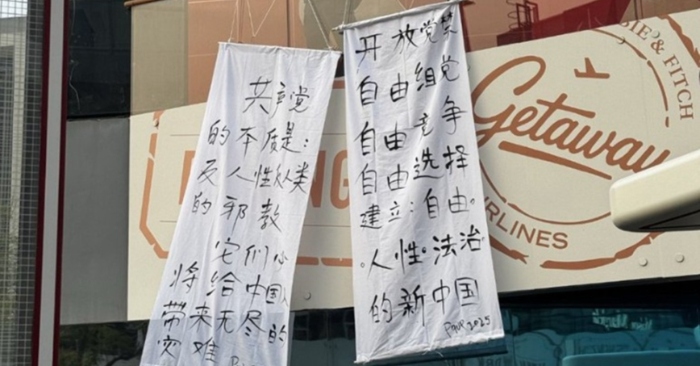 共产党
的本质是:
反人性 人类
的邪教
它们必
将给中国人
带来无尽的
灾难
开放党禁
自由组党
自由竞争
自由选择
建立:自由。
人性。法治。
的新中国
2025
Getaway
IRLINES
IE & FITCH